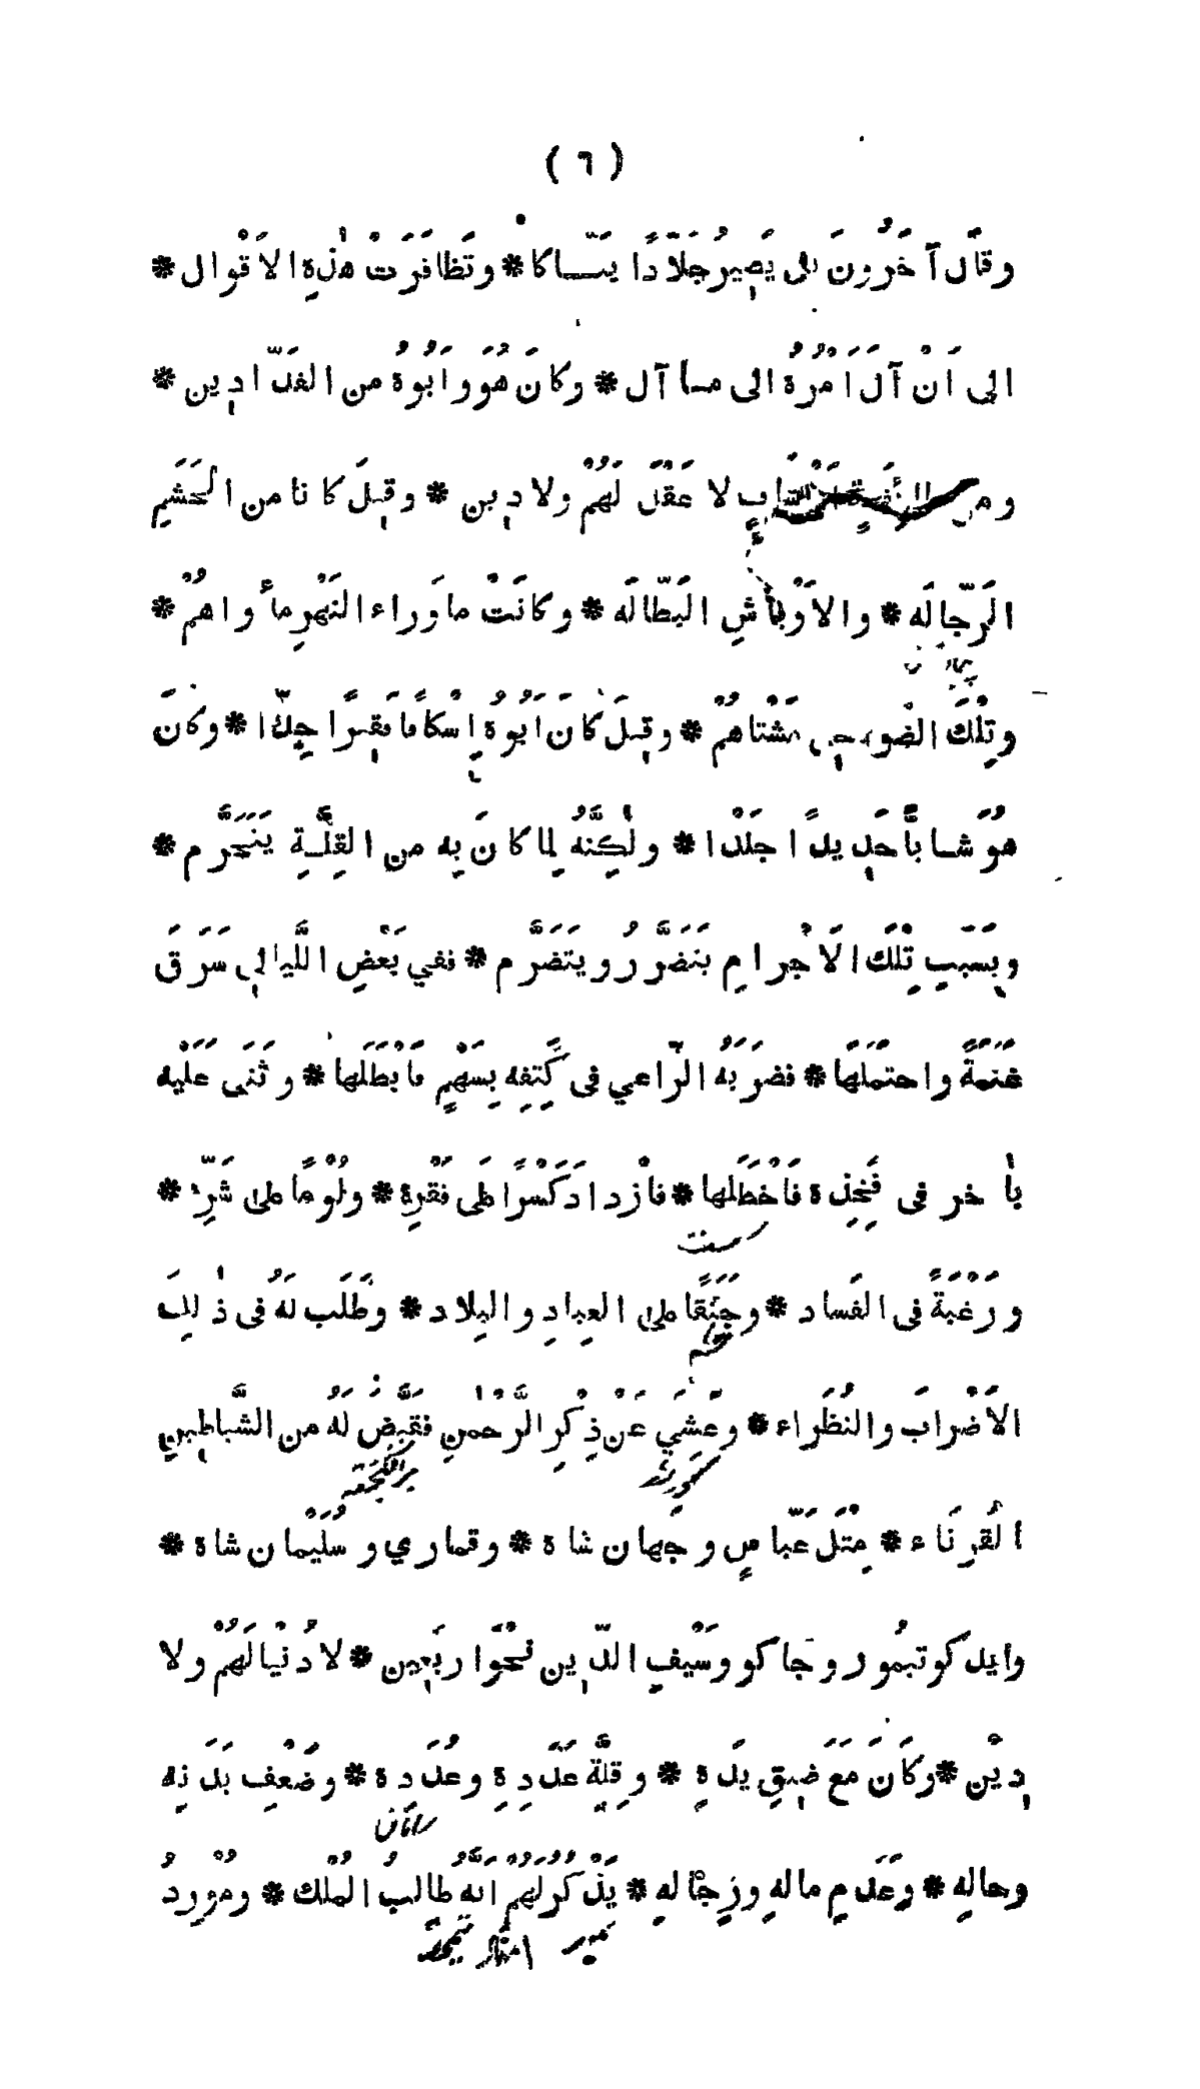 ( ٦ )
وقَالَ آخَرُونَ بل يَصِيرُ جَلّادًا بَتّاكا * وتَظافَرَتْ هٰذِهِ الاَقْوال *
الى اَنْ آلَ اَمْرُهُ الى ما آل * وكانَ هُوَ واَبُوهُ من الفَدّادِين *
ومن لا عَقْلَ لَهُمْ ولا دِين * وقِيلَ كانا من الحَشَمِ
الرَّجّالَه * والاَوْباشِ البَطّالَه * وكانَتْ ماوَراء النَهْرِ مأواهُمْ *
وتِلْكَ الضَواحِي مَشْتاهُمْ * وقِيلَ كانَ اَبُوهُ اِسْكافًا فَقِيرًا جِدًّا * وكانَ
هُوَ شابًّا حَدِيدًا جَلْدا * ولٰكِنَّهُ لِما كانَ بِهِ من القِلَّةِ يَتَجَرَّم *
وبِسَبَبِ تِلْكَ الاَجْرامِ يَتَضَرَّرُ ويَتَضَرَّم * ففي بَعْضِ اللَّيالِي سَرَقَ
غَنَمَةً واحتَمَلَها * فضَرَبَهُ الرّاعي في كَتِفِهِ بِسَهْمٍ فاَبْطَلَها * وثَنَى عَلَيْهِ
بآخر في فَخِذِهِ فَاَخْطَلَها * فازْدادَ كَسْرًا على فَقْرِهِ * ولُوْمًا على شَرِّهِ *
ورَغْبَةً في الفَساد * وحَنَقًا على العِبادِ والبِلاد * وطَلَب لهُ في ذٰلِكَ
الاَضْرابَ والنُظَراء * وعَشِيَ عَنْ ذِكْرِ الرَّحْمٰنِ فقَيَّضَ لَهُ من الشَّياطِينِ
القُرَناء * مِثْلَ عَبّاسٍ وجَهان شاه * وقماري وسُلَيْمان شاه *
وايدكو تيمُور وجاكو وسَيْفِ الدِّين نَحْوَ اربَعِين * لا دُنْيا لَهُمْ ولا
دِيْن * وكانَ مَعَ ضِيقِ يَدِهِ * وقِلَّةِ عَدَدِهِ وعُدَدِه * وضَعْفِ بَدَنِهِ
وحالِهِ * وعَدَمِ مالِهِ ورِجالِهِ * يَذْكُرُ لهُمْ اَنَّهُ طالِبُ المُلْك * ومُورِدُ